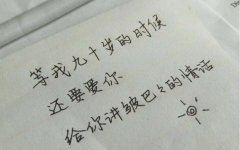 等我九十岁的时候
还要要你
给你讲皱巴々的情话